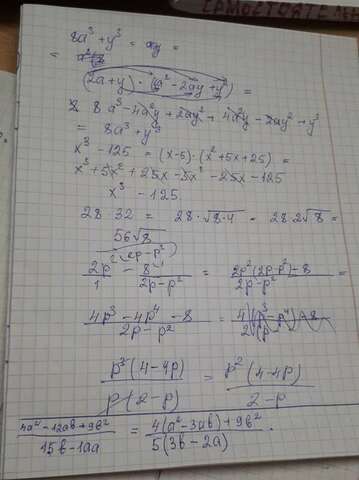 8a³ + y³ = ay =
= a²(8
(2a+y) · (4a² - 2ay + y²) =
8a³ - 4a²y + 2ay² + 4a²y - 2ay² + y³
= 8a³ + y³
x³ - 125 = (x-5) · (x² + 5x + 25) =
x³ + 5x² + 25x - 5x² - 25x - 125
x³ - 125
28 32 = 28 · √8·4 = 28 2√8 =
56√8
2p/1 - 8/(2p - p²) = (2p²(2p-p²) - 8)/(2p - p²) =
(4p³ - 4p⁴ - 8)/(2p - p²) =
p³(4-4p)/p(2-p) = p²(4-4p)/(2-p)
(4a² - 12ab + 9b²)/(15b - 10a) = (4(a² - 3ab) + 9b²)/(5(3b - 2a)) .